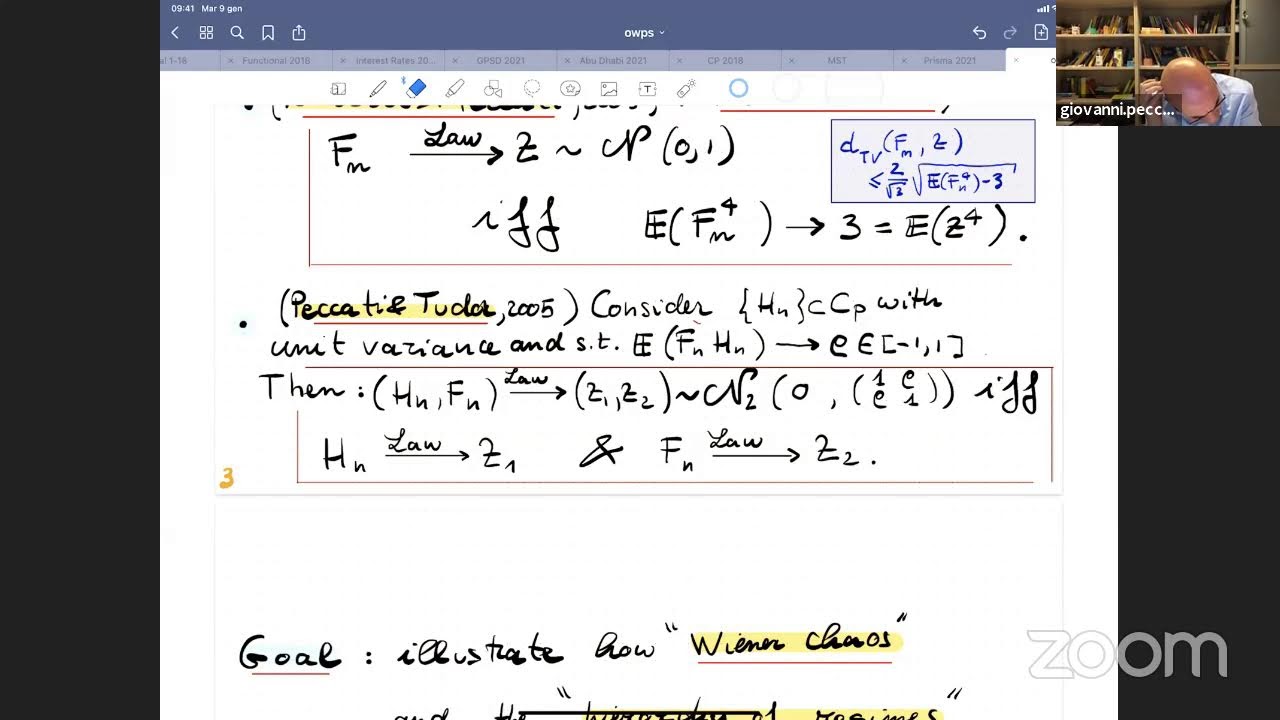 09:41 Mar 9 gen
owps
al 1-18
Functional 2018
Interest Rates 20...
GPSD 2021
Abu Dhabi 2021
CP 2018
MST
Prisma 2021
giovanni.pecc...
F_n —Law→ Z ~ N(0,1)
d_TV(F_n, Z)
≤ 2/√3 √E(F_n^4)-3
iff E(F_n^4) → 3 = E(Z^4).
• (Peccati & Tudor, 2005) Consider {H_n} ⊂ C_p with
unit variance and s.t. E(F_n H_n) → ρ ∈ [-1,1]
Then : (H_n, F_n) —Law→ (Z_1, Z_2) ~ N_2(0, (1 ρ ρ 1)) iff
H_n —Law→ Z_1 & F_n —Law→ Z_2.
3
Goal : illustrate how "Wiener chaos"
and the "hierarchy of regimes"
zoom